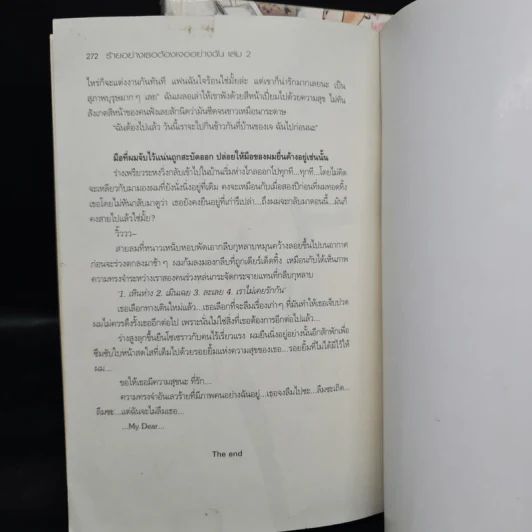 272 ร้ายอย่างเธอต้องเจออย่างฉัน เล่ม 2
ไหร่ก็จะแต่งงานกันทันที แฟนฉันใจร้อนใช่มั้ยล่ะ แต่เขาก็น่ารักมากเลยนะ เป็น
สุภาพบุรุษมาก ๆ เลย" ฉันเผลอเล่าให้เขาฟังด้วยสีหน้าเปี่ยมไปด้วยความสุข ไม่ทัน
สังเกตสีหน้าของคนฟังเลยสักนิดว่ามันซีดจนขาวเหมือนกระดาษ
"ฉันต้องไปแล้ว วันนี้เราจะไปกินข้าวกันที่บ้านของเจ ฉันไปก่อนนะ"
มือที่ผมจับไว้แน่นถูกสะบัดออก ปล่อยให้มือของผมยื่นค้างอยู่เช่นนั้น
ร่างเพรียวระหงวิ่งกลับเข้าไปในบ้านเริ่มห่างไกลออกไปทุกที...ทุกที...โดยไม่คิด
จะเหลียวกลับมามองผมที่ยังนั่งนิ่งอยู่ที่เดิม คงจะเหมือนกับเมื่อสองปีก่อนที่ผมทอดทิ้ง
เธอโดยไม่หันกลับมาดูว่า เธอยังคงยืนอยู่ที่เก่ารึเปล่า...ถึงผมจะกลับมาตอนนี้...มันก็
คงสายไปแล้วใช่มั้ย?
วิ้ววว~
สายลมที่หนาวเหน็บหอบพัดเอากลีบกุหลาบหมุนคว้างลอยขึ้นไปบนอากาศ
ก่อนจะร่วงตกลงมาช้า ๆ ผมก้มลงมองกลีบที่ถูกเด็ดทิ้ง เหมือนกับได้เห็นภาพ
ความทรงจำระหว่างเราสองคนร่วงหล่นกระจัดกระจายแทนที่กลีบกุหลาบ
'1. เหินห่าง 2. เมินเฉย 3. ละเลย 4. เราไม่เคยรักกัน'
เธอเลือกทางเดินใหม่แล้ว...เธอเลือกที่จะลืมเรื่องเก่า ๆ ที่มันทำให้เธอเจ็บปวด
ผมไม่ควรดึงรั้งเธออีกต่อไป เพราะนั่นไม่ใช่สิ่งที่เธอต้องการอีกต่อไปแล้ว...
ร่างสูงลุกขึ้นยืนโซเซราวกับคนไร้เรี่ยวแรง ผมยืนนิ่งอยู่อย่างนั้นอีกสักพักเพื่อ
ซึมซับใบหน้าสดใสที่เต็มไปด้วยรอยยิ้มแห่งความสุขของเธอ...รอยยิ้มที่ไม่ได้มีไว้ให้
ผม...
ขอให้เธอมีความสุขนะ ที่รัก...
ความทรงจำอันเลวร้ายที่มีภาพคนอย่างฉันอยู่...เธอจงลืมไปซะ...ลืมซะเถิด...
ลืมซะ...แต่ฉันจะไม่ลืมเธอ...
...My Dear...
The end